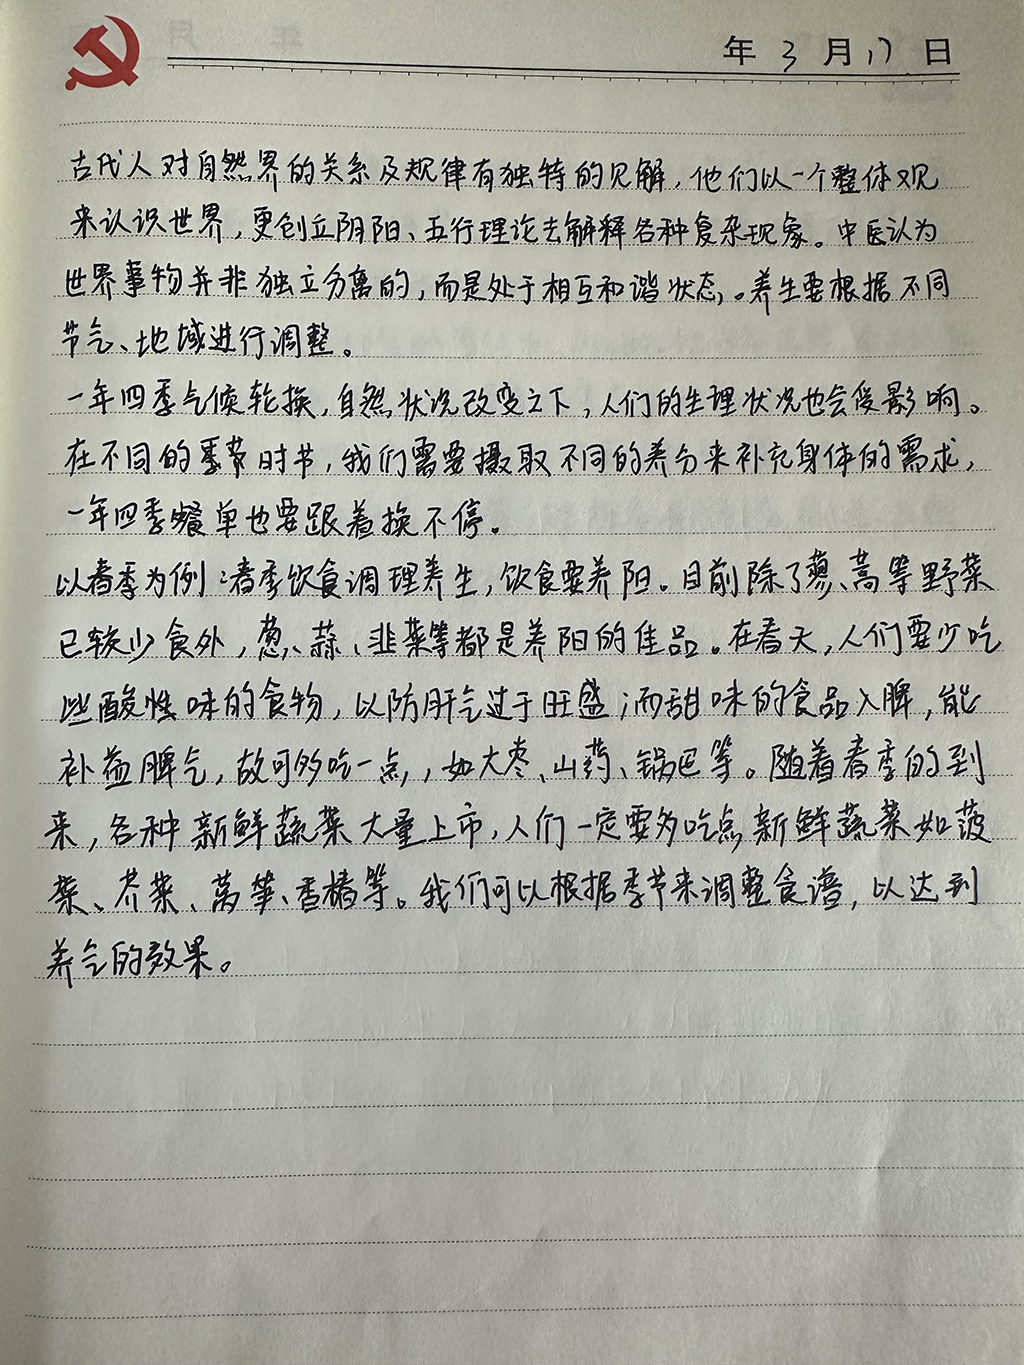 年 3 月 17 日
古代人对自然界的关系及规律有独特的见解,他们以一个整体观
来认识世界,更创立阴阳、五行理论去解释各种复杂现象。中医认为
世界事物并非独立分离的,而是处于相互和谐状态。养生要根据不同
节气、地域进行调整。
一年四季气候轮换,自然状况改变之下,人们的生理状况也会受影响。
在不同的季节时节,我们需要摄取不同的养分来补充身体的需求,
一年四季餐单也要跟着换不停。
以春季为例:春季饮食调理养生,饮食要养阳。目前除了蓼、蒿等野菜
已较少食外,葱、蒜、韭菜等都是养阳的佳品。在春天,人们要少吃
些酸性味的食物,以防肝气过于旺盛;而甜味的食品入脾,能
补益脾气,故可多吃一点,如大枣、山药、锅巴等。随着春季的到
来,各种新鲜蔬菜大量上市,人们一定要多吃点新鲜蔬菜如菠
菜、芥菜、莴笋、香椿等。我们可以根据季节来调整食谱,以达到
养气的效果。